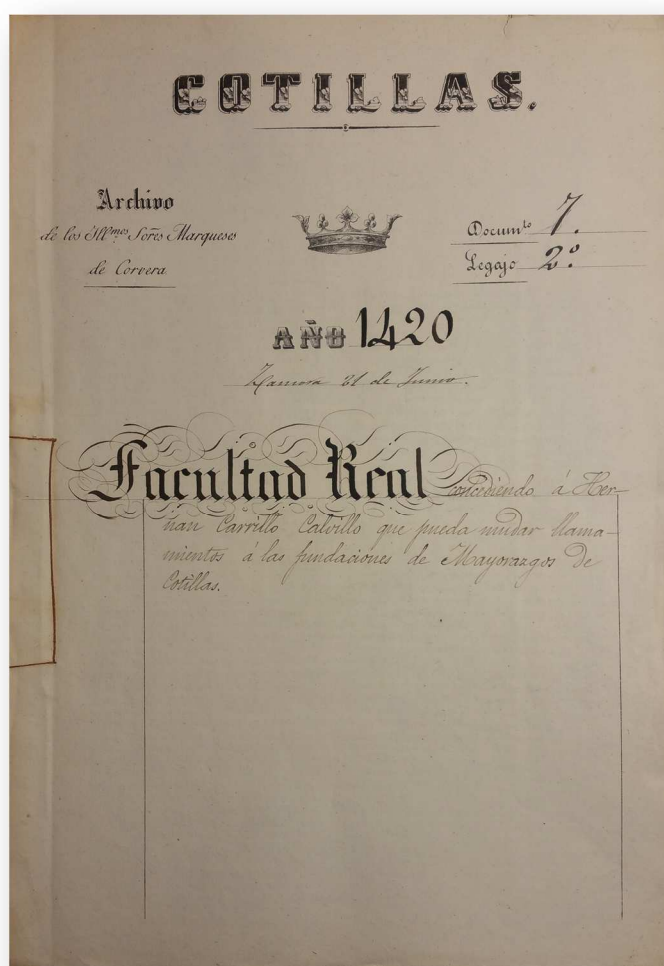 COTILLAS.
Archivo
de los Illmos. Sores Marqueses
de Corvera
Documto 7.
Legajo 2º
AÑO 1420
Zamora 21 de Junio.
Facultad Real concediendo á Her-
nan Carrillo Calvillo que pueda mudar llama-
mientos a las fundaciones de Mayorazgos de
Cotillas.